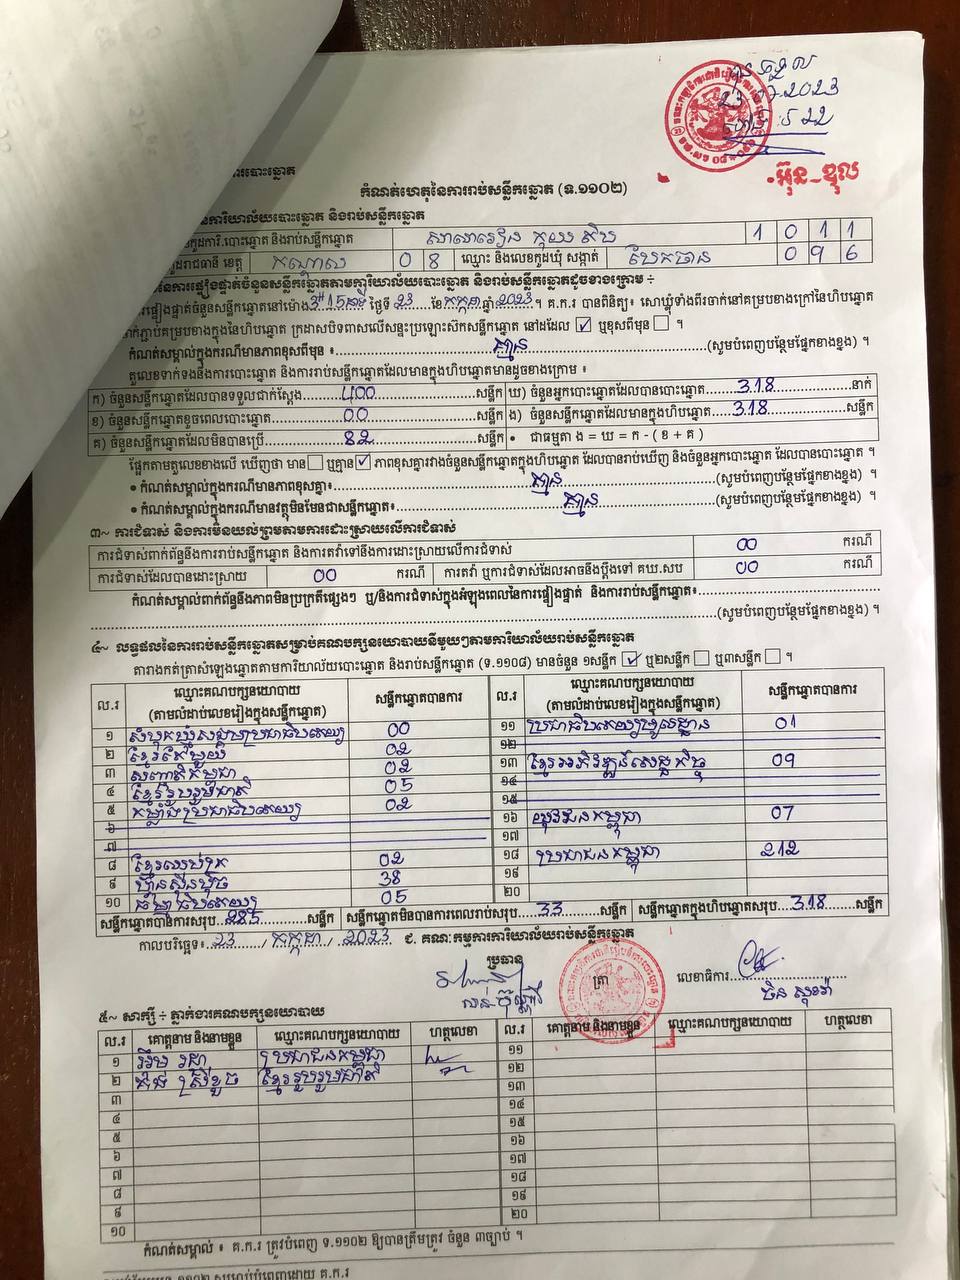 បានទទួល
23-07-2023
ម៉ោង ៖ 22
អ៊ុន-ខួល
ការបោះឆ្នោត
កំណត់ហេតុនៃការរាប់សន្លឹកឆ្នោត (ទ.១១០២)
នការិយាល័យបោះឆ្នោត និងរាប់សន្លឹកឆ្នោត
កូដការិ.បោះឆ្នោត និងរាប់សន្លឹកឆ្នោត 1 0 1 1
ូដរាជធានី ខេត្ត កណ្តាល 0 8 ឈ្មោះ និងលេខកូដឃុំ សង្កាត់ បែកចាន 0 9 6
នៃការផ្ទៀងផ្ទាត់ចំនួនសន្លឹកឆ្នោតតាមការិយាល័យបោះឆ្នោត និងរាប់សន្លឹកឆ្នោតដូចខាងក្រោម ÷
រផ្ទៀងផ្ទាត់ចំនួនសន្លឹកឆ្នោតនៅម៉ោង 3 15នាទី ថ្ងៃទី 23 ខែ កក្កដា ឆ្នាំ 2023 ។ គ.ក.រ បានពិនិត្យ៖ សោឃ្លុំទាំងពីរចាក់នៅគម្របខាងក្រៅនៃហិបឆ្នោត
ាក់ភ្ជាប់គម្របខាងក្នុងនៃហិបឆ្នោត ក្រដាសបិទពាសលើសន្ទះប្រឡោះស៊កសន្លឹកឆ្នោត នៅដដែល ✓ ឬខុសពីមុន ។
កំណត់សម្គាល់ក្នុងករណីមានភាពខុសពីមុន ៖ គ្មាន (សូមបំពេញបន្ថែមផ្នែកខាងខ្នង) ។
តួលេខទាក់ទងនឹងការបោះឆ្នោត និងការរាប់សន្លឹកឆ្នោតដែលមានក្នុងហិបឆ្នោតមានដូចខាងក្រោម ៖
ក) ចំនួនសន្លឹកឆ្នោតដែលបានទទួលជាក់ស្តែង 400 សន្លឹក ឃ) ចំនួនអ្នកបោះឆ្នោតដែលបានបោះឆ្នោត 318 នាក់
ខ) ចំនួនសន្លឹកឆ្នោតខូចពេលបោះឆ្នោត 00 សន្លឹក ង) ចំនួនសន្លឹកឆ្នោតដែលមានក្នុងហិបឆ្នោត 318 សន្លឹក
គ) ចំនួនសន្លឹកឆ្នោតដែលមិនបានប្រើ 82 សន្លឹក • ជាធម្មតា ង = ឃ = ក - ( ខ + គ )
ផ្អែកតាមតួលេខខាងលើ ឃើញថា មាន ឬគ្មាន ✓ ភាពខុសគ្នារវាងចំនួនសន្លឹកឆ្នោតក្នុងហិបឆ្នោត ដែលបានរាប់ឃើញ និងចំនួនអ្នកបោះឆ្នោត ដែលបានបោះឆ្នោត ។
• កំណត់សម្គាល់ក្នុងករណីមានភាពខុសគ្នា៖ គ្មាន (សូមបំពេញបន្ថែមផ្នែកខាងខ្នង) ។
• កំណត់សម្គាល់ក្នុងករណីមានវត្ថុមិនមែនជាសន្លឹកឆ្នោត៖ គ្មាន (សូមបំពេញបន្ថែមផ្នែកខាងខ្នង) ។
៣~ ការជំទាស់ និងការមិនយល់ព្រមតាមការដោះស្រាយលើការជំទាស់
ការជំទាស់ពាក់ព័ន្ធនឹងការរាប់សន្លឹកឆ្នោត និងការតវ៉ាទៅនឹងការដោះស្រាយលើការជំទាស់ 00 ករណី
ការជំទាស់ដែលបានដោះស្រាយ 00 ករណី ការតវ៉ា ឬការជំទាស់ដែលអាចនឹងប្តឹងទៅ គឃ.សប 00 ករណី
កំណត់សម្គាល់ពាក់ព័ន្ធនឹងភាពមិនប្រក្រតីផ្សេងៗ ឬ/និងការជំទាស់ក្នុងអំឡុងពេលនៃការផ្ទៀងផ្ទាត់ និងការរាប់សន្លឹកឆ្នោត៖
(សូមបំពេញបន្ថែមផ្នែកខាងខ្នង) ។
៤~ លទ្ធផលនៃការរាប់សន្លឹកឆ្នោតសម្រាប់គណបក្សនយោបាយនីមួយៗតាមការិយាល័យរាប់សន្លឹកឆ្នោត
តារាងកត់ត្រាសំឡេងឆ្នោតតាមការិយាល័យបោះឆ្នោត និងរាប់សន្លឹកឆ្នោត (ទ.១១០៨) មានចំនួន ១សន្លឹក ✓ ឬ២សន្លឹក ឬ៣សន្លឹក ។
ល.រ ឈ្មោះគណបក្សនយោបាយ (តាមលំដាប់លេខរៀងក្នុងសន្លឹកឆ្នោត) សន្លឹកឆ្នោតបានការ ល.រ ឈ្មោះគណបក្សនយោបាយ (តាមលំដាប់លេខរៀងក្នុងសន្លឹកឆ្នោត) សន្លឹកឆ្នោតបានការ
១ សំបុកឃ្មុំសង្គមប្រជាធិបតេយ្យ 00 ១១ ប្រជាធិបតេយ្យមូលដ្ឋាន 01
២ ខ្មែរតែមួយ 02 ១២
៣ សញ្ជាតិកម្ពុជា 02 ១៣ ខ្មែរអភិវឌ្ឍន៍សេដ្ឋកិច្ច 09
៤ ខ្មែររួបរួមជាតិ 05 ១៤
៥ កម្លាំងប្រជាធិបតេយ្យ 02 ១៥
៦ ១៦ យុវជនកម្ពុជា 07
៧ ១៧
៨ ខ្មែរឈប់ក្រ 02 ១៨ ប្រជាជនកម្ពុជា 212
៩ ហ៊្វុនស៊ិនប៉ិច 38 ១៩
១០ ធម្មាធិបតេយ្យ 05 ២០
សន្លឹកឆ្នោតបានការសរុប 285 សន្លឹក សន្លឹកឆ្នោតមិនបានការពេលរាប់សរុប 33 សន្លឹក សន្លឹកឆ្នោតក្នុងហិបឆ្នោតសរុប 318 សន្លឹក
កាលបរិច្ឆេទ៖ 23 / កក្កដា / 2023 ៩. គណៈកម្មការការិយាល័យរាប់សន្លឹកឆ្នោត
ប្រធាន ត្រា លេខាធិការ
ចិន សុខវ៉ា
៥~ សាក្សី ÷ ភ្នាក់ងារគណបក្សនយោបាយ
ល.រ គោត្តនាម និងនាមខ្លួន ឈ្មោះគណបក្សនយោបាយ ហត្ថលេខា ល.រ គោត្តនាម និងនាមខ្លួន ឈ្មោះគណបក្សនយោបាយ ហត្ថលេខា
១ អឹម រដ្ឋា ប្រជាជនកម្ពុជា ១១
២ ស្រីខួច ខ្មែររួបរួមជាតិ ១២
៣ ១៣
៤ ១៤
៥ ១៥
៦ ១៦
៧ ១៧
៨ ១៨
៩ ១៩
១០ ២០
កំណត់សម្គាល់ ៖ គ.ក.រ ត្រូវបំពេញ ទ.១១០២ ឱ្យបានត្រឹមត្រូវ ចំនួន ៣ច្បាប់ ។
ទ.១១០២ សម្រាប់បំពេញដោយ គ.ក.រ